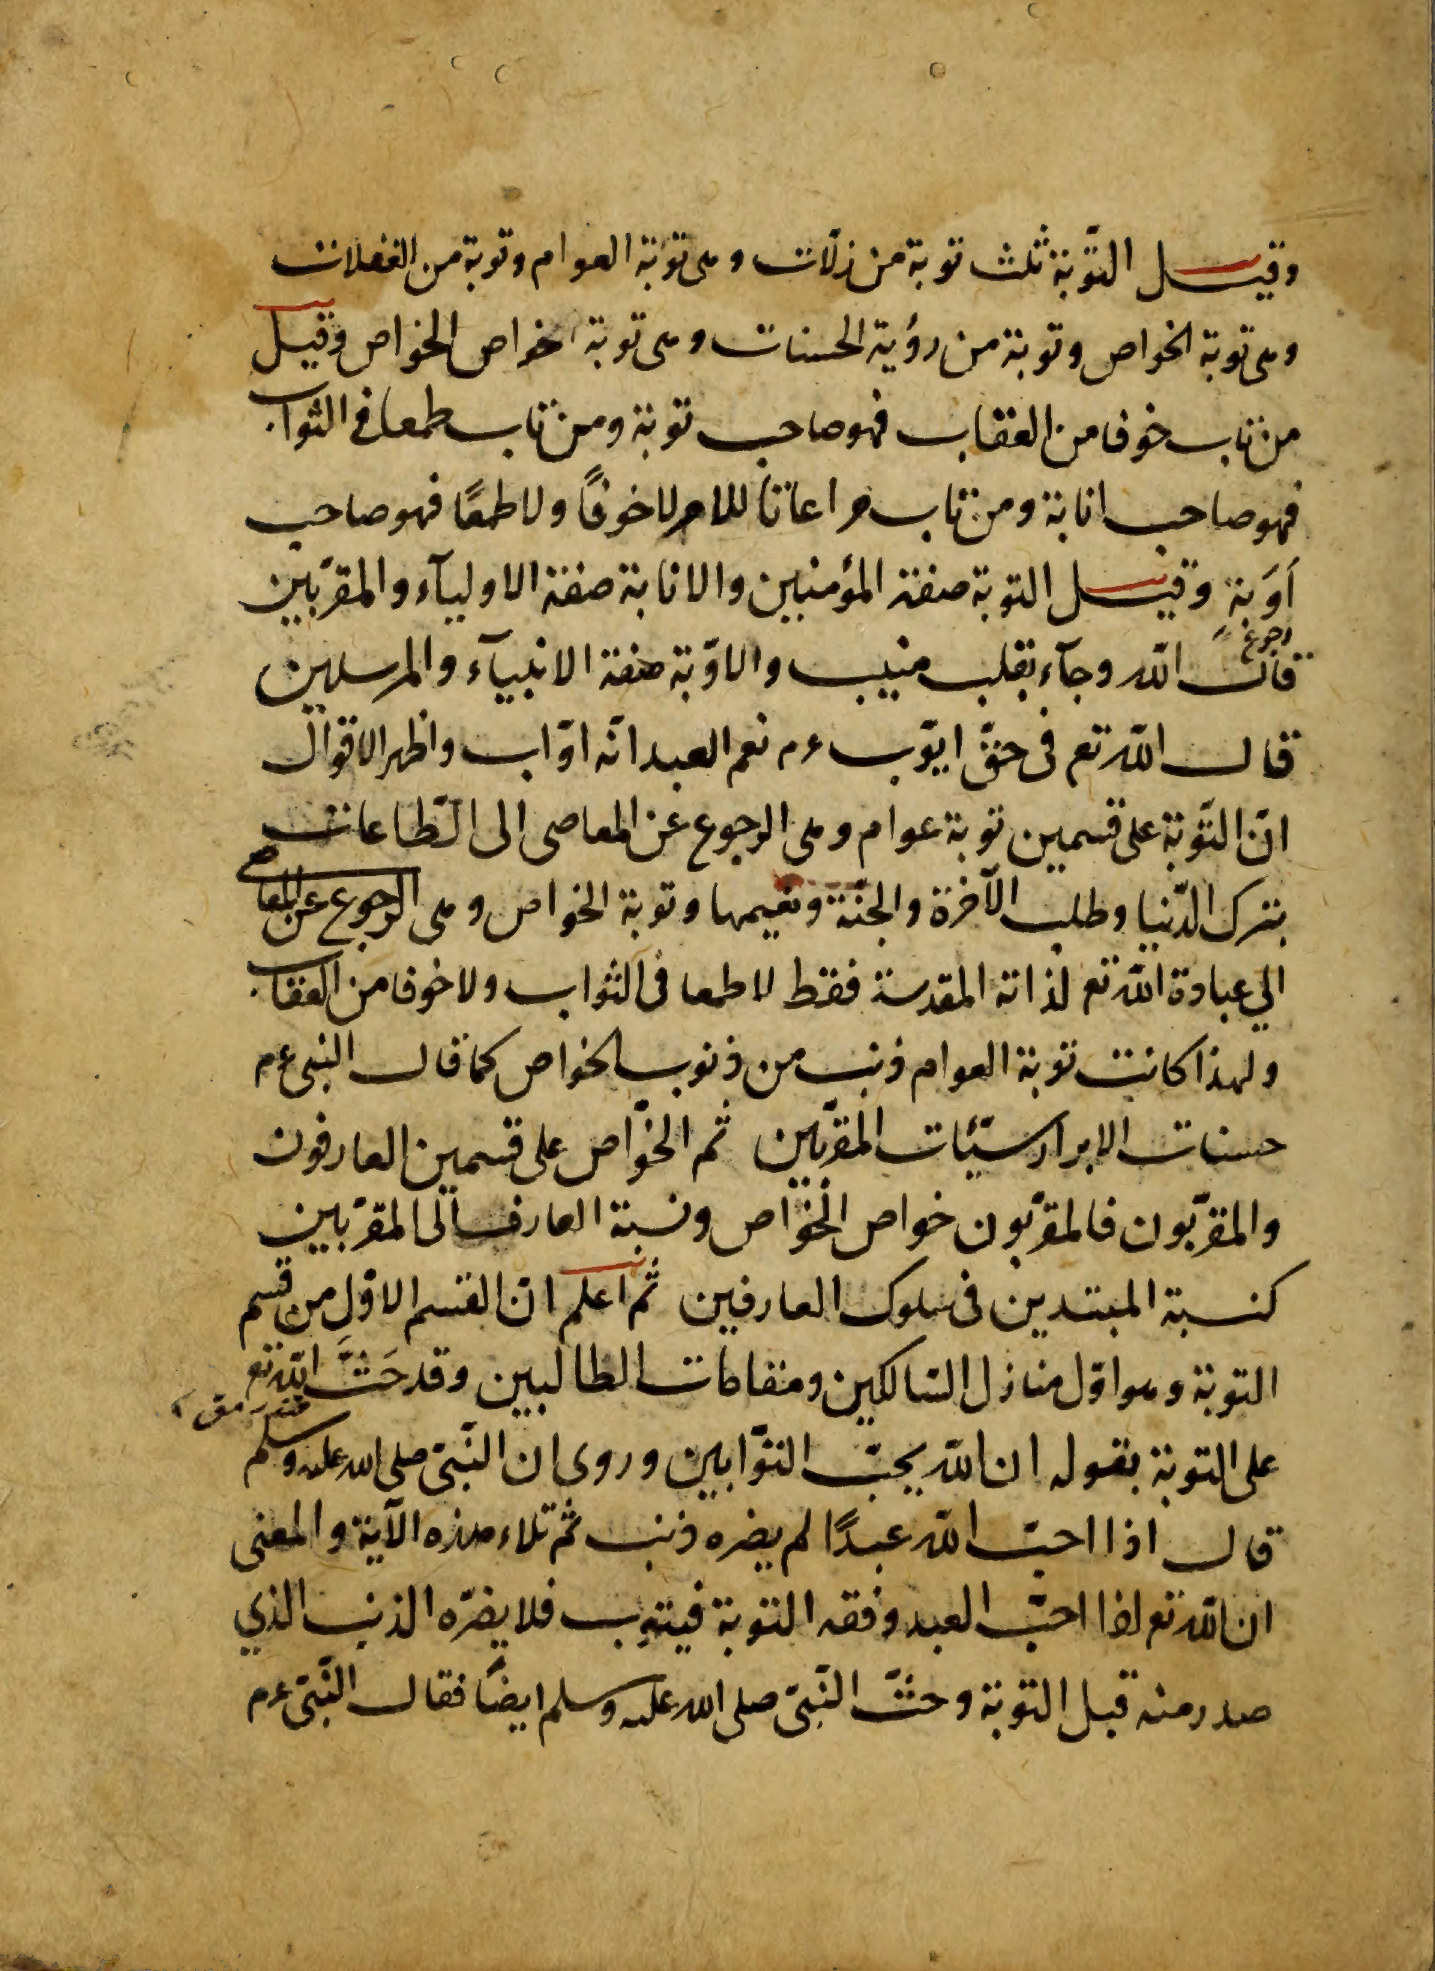 وقيل التّوبة ثلث توبة من زلّات وهى توبة العوام وتوبة من الغفلات
وهى توبة الخواص وتوبة من رؤية الحسنات وهى توبة اخواص الخواص وقيل
من تاب خوفا من العقاب فهو صاحب توبة ومن تاب طمعا فى الثواب
فهو صاحب انابة ومن تاب مراعاتا للامر لا خوفًا ولا طمعًا فهو صاحب
اَوَبَةٍ وقيل التوبة صفة المؤمنين والانابة صفة الاوليآء والمقرّبين
رجوع
قال الله وجآء بقلب منيب والاوّبة صفة الانبيآء والمرسلين
قال اللّه تع فى حقّ ايّوب ءم نعم العبد انّه اوّاب واظهر الاقوال
انّ التّوبة على قسمين توبة عوام وهى الرجوع عن المعاصى الى الطّاعات
بترك الدّنيا وطلب الآخرة والجنّة ونعيمها وتوبة الخواص وهى الرجوع عن المعاصى
الي عبادة اللّه تع لذاته المقدسة فقط لا طمعا فى الثواب ولا خوفا من العقاب
ولهذا كانت توبة العوام ذنب من ذنوب الخواص كما قال النبى ءم
حسنات الابرار سيّئات المقرّبين ثم الخوّاص على قسمين العارفون
والمقرّبون فالمقرّبون خواص الخوّاص ونسبة العارف الى المقرّبين
كنسبة المبتدين فى سلوك العارفين ثم اعلم انّ القسم الاوّل من قسم
التوبة وهو اوّل منازل السّالكين ومقامات الطالبين وقد حَثَّ اللّه تع
على التوبة بقوله ان اللّه يحبّ التوّابين وروى ان النّبىّ صلى الله عليه وسلم
قال اذا احبّ اللّه عبدًا لم يضره ذنب ثم تلاء هذه الآية والمعنى
ان اللّه تع اذا احبّ العبد وفقه التوبة فيتوب فلا يضرّه الذنب الذي
صدر منه قبل التوبة وحثّ النّبىّ صلى الله عليه وسلم ايضًا فقال النّبىّ ءم